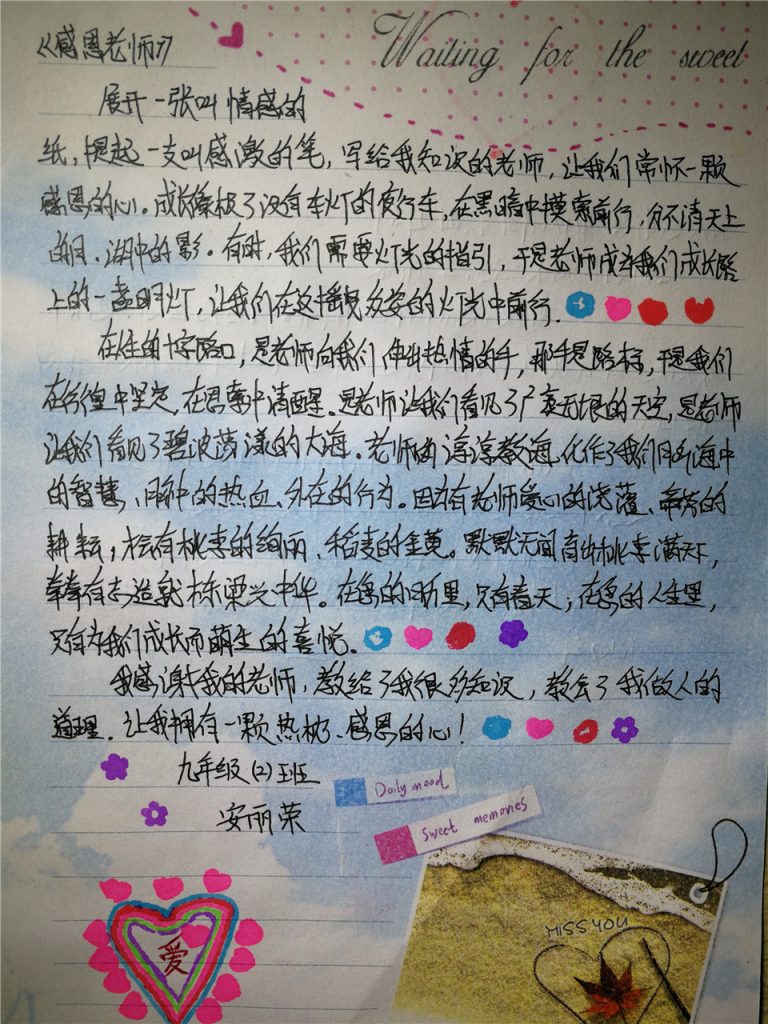 《感恩老师》
Waiting for the sweet
展开一张叫情感的
纸，提起一支叫感激的笔，写给我知识的老师，让我们常怀一颗
感恩的心。成长像极了没有车灯的夜行车，在黑暗中摸索前行，分不清天上
的月、湖中的影。有时，我们需要灯光的指引，于是老师成为我们成长路
上的一盏明灯，让我们在这摇曳多姿的灯光中前行.
在人生的十字路口，是老师向我们伸出热情的手，那手是路标，于是我们
在彷徨中坚定，在思索中清醒。是老师让我们看见了广袤无垠的天空，是老师
让我们看见了碧波荡漾的大海。老师的谆谆教诲化作了我们脑海中
的智慧、脉中的热血、外在的行为。因为有老师爱心的浇灌、辛劳的
耕耘，才会有桃李的绚丽、稻麦的金黄。默默无闻育出桃李满天下，
拳拳有志造就栋梁兴中华。在您的词斯里，只有春天；在您的人生里，
只有为我们成长而萌生的喜悦。
我感谢我的老师，教给了我很多知识，教会了我做人的
道理. 让我拥有一颗热忱、感恩的心！
九年级(2)班
安丽荣
Daily mood
Sweet memories
MISS YOU
爱